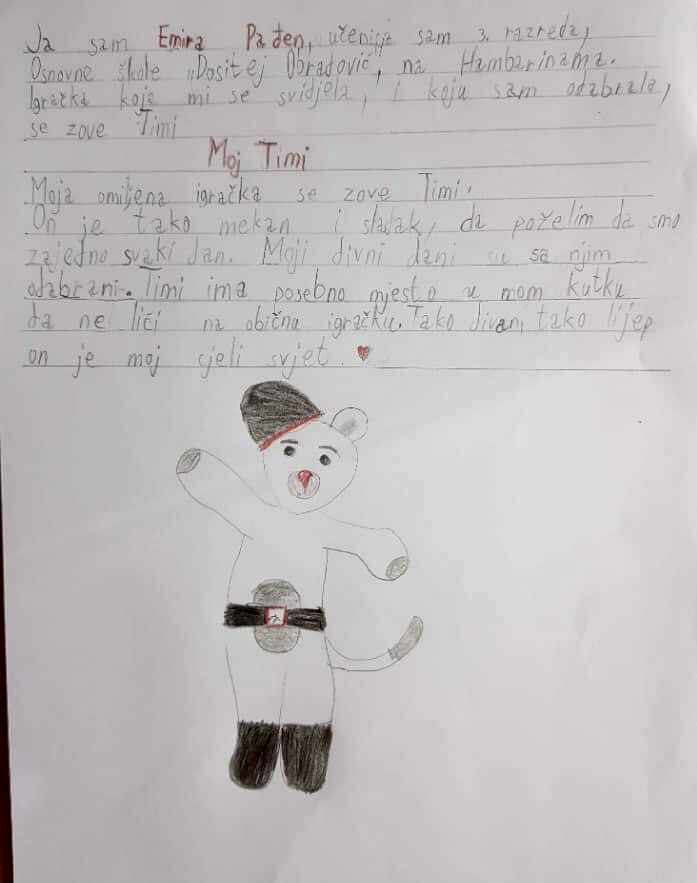 Ja sam Emira Pađen, učenica sam 3. razreda,
Osnovne škole „Dositej Obradović", na Hambarinama.
Igračka koja mi se svidjela, i koju sam odabrala,
se zove Timi
Moj Timi
Moja omiljena igračka se zove Timi.
On je tako mekan i sladak, da poželim da smo
zajedno svaki dan. Moji divni dani su sa njim
odabrani. Timi ima posebno mjesto u mom kutku
da ne liči na običnu igračku. Tako divan, tako lijep
on je moj cjeli svjet.